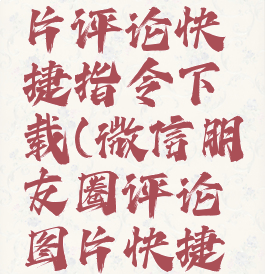 片评论快
捷指令下
载(微信朋
友圈评论
图片快捷